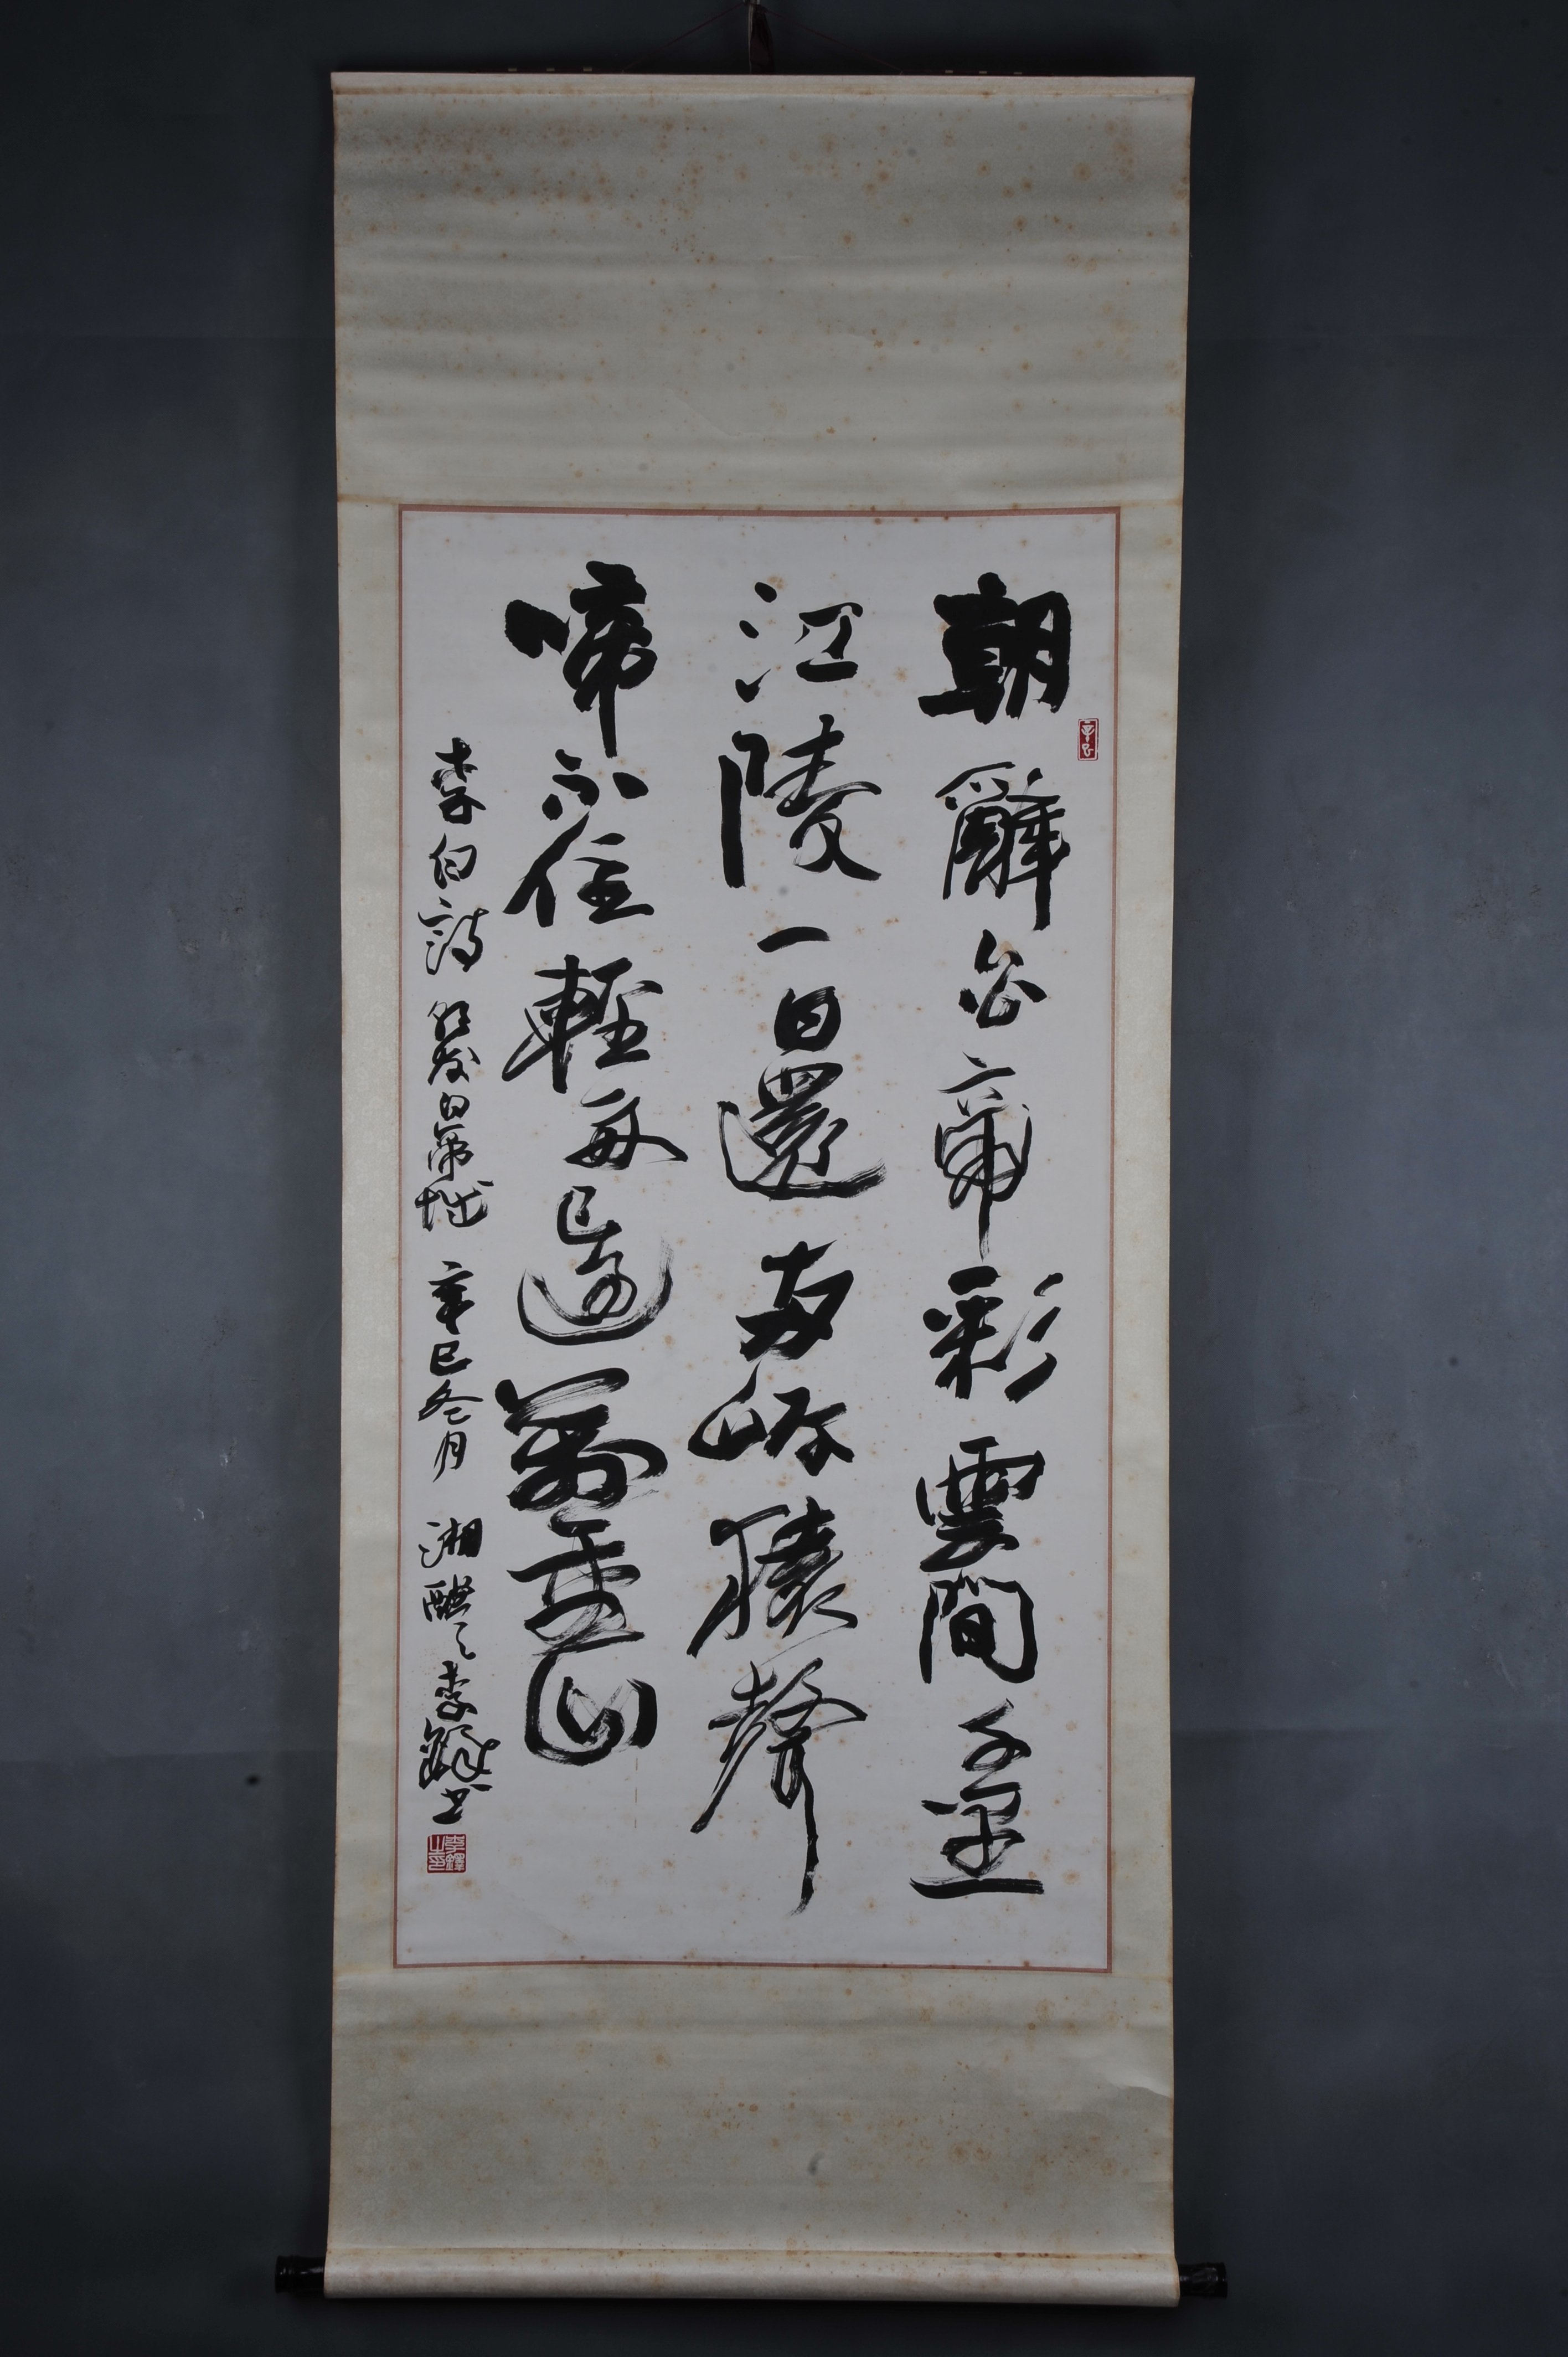 朝辭白帝彩雲間千里
江陵一日還兩岸猿聲
啼不住輕舟已過萬重山
李白詩朝发白帝城 辛巳冬月 湘醴之李鐸书
辛巳
李鐸之印